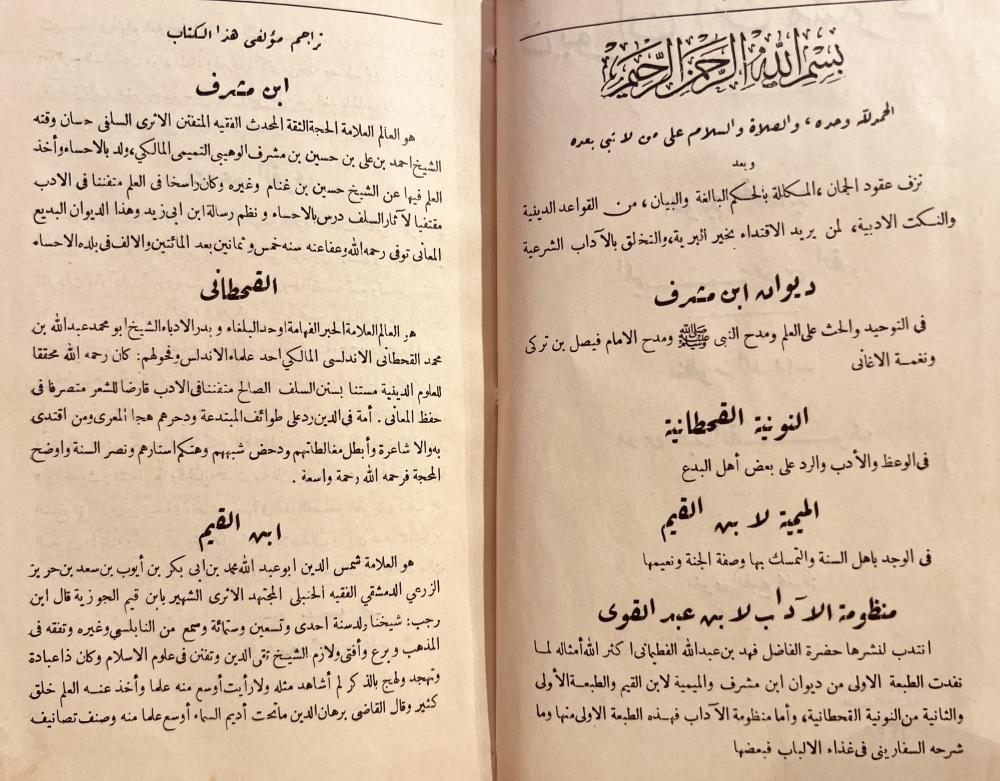 بسم الله الرحمن الرحيم
الحمد لله وحده ، والصلاة والسلام على من لا نبى بعده
وبعد
نزف عقود الجمان ، المكالة بالحكم البالغة والبيان ، من القواعد الدينية
والنكت الادبية ، لمن يريد الاقتداء بخير البرية ، والتخلق بالآداب الشرعية
ديوان ابن مشرف
فى التوحيد والحث على العلم ومدح النبى ﷺ ومدح الامام فيصل بن تركى
ونغمة الاغانى
النونية القحطانية
فى الوعظ والأدب والرد على بعض أهل البدع
الميمية لابن القيم
فى الوجد باهل السنة والتمسك بها وصفة الجنة ونعيمها
منظومة الآداب لابن عبد القوى
انتدب لنشرها حضرة الفاضل فهد بن عبدالله الفطيمانى اكثر الله أمثاله لما
نفدت الطبعة الاولى من ديوان ابن مشرف والميمية لابن القيم والطبعة الأولى
والثانية من النونية القحطانية ، وأما منظومة الآداب فهذه الطبعة الاولى منها وما
شرحه السفارينى فى غذاء الالباب فبعضها
تراجم مؤلفى هذا الكتاب
ابن مشرف
هو العالم العلامة الحجة الثقة المحدث الفقيه المتفنن الاثرى السلفى حسان وقته
الشيخ احمد بن على بن حسين بن مشرف الوهيبى التميمى المالكي، ولد بالاحساء وأخذ
العلم فيها عن الشيخ حسين بن غنام وغيره وكان راسخا فى العلم متفننا فى الادب
مقتفيا لآثار السلف درس بالاحساء ونظم رسالة ابن ابى زيد وهذا الديوان البديع
المعانى توفى رحمه الله وعفا عنه سنه خمس وثمانين بعد المائتين والالف فى بلده الاحساء
القحطانى
هو العالم العلامة الحبر الفهامة اوحد البلغاء وبدر الادباء الشيخ ابو محمد عبدالله بن
محمد القحطانى الاندلسى المالكي احد علماء الاندلس وفحولهم : كان رحمه الله محققا
للعلوم الدينية مستنا بسنن السلف الصالح متفننا فى الادب قارضا للشعر متصرفا فى
حفظ المعانى . أمة فى الدين رد على طوائف المبتدعة ودحرهم هجا المعرى ومن اقتدى
به والاشاعرة وأبطل مغالطاتهم ودحض شبههم وهتك استارهم ونصر السنة واوضح
المحجة فرحمه الله رحمة واسعة .
ابن القيم
هو العلامة شمس الدين ابو عبد الله محمد بن ابى بكر بن أيوب بن سعد بن حريز
الزرعي الدمشقي الفقيه الحنبلى المجتهد الاثرى الشهير بابن قيم الجوزية قال ابن
رجب : شيخنا ولد سنة احدى وتسعين وستمائة وسمع من النابلسى وغيره وتفقه فى
المذهب وبرع وأفتى ولازم الشيخ تقى الدين وتفنن فى علوم الاسلام وكان ذا عبادة
وتهجد ولهج بالذكر لم أشاهد مثله ولا رأيت أوسع منه علما وأخذ عنه العلم خلق
كثير وقال القاضى برهان الدين ما تحت أديم السماء أوسع علما منه وصنف تصانيف